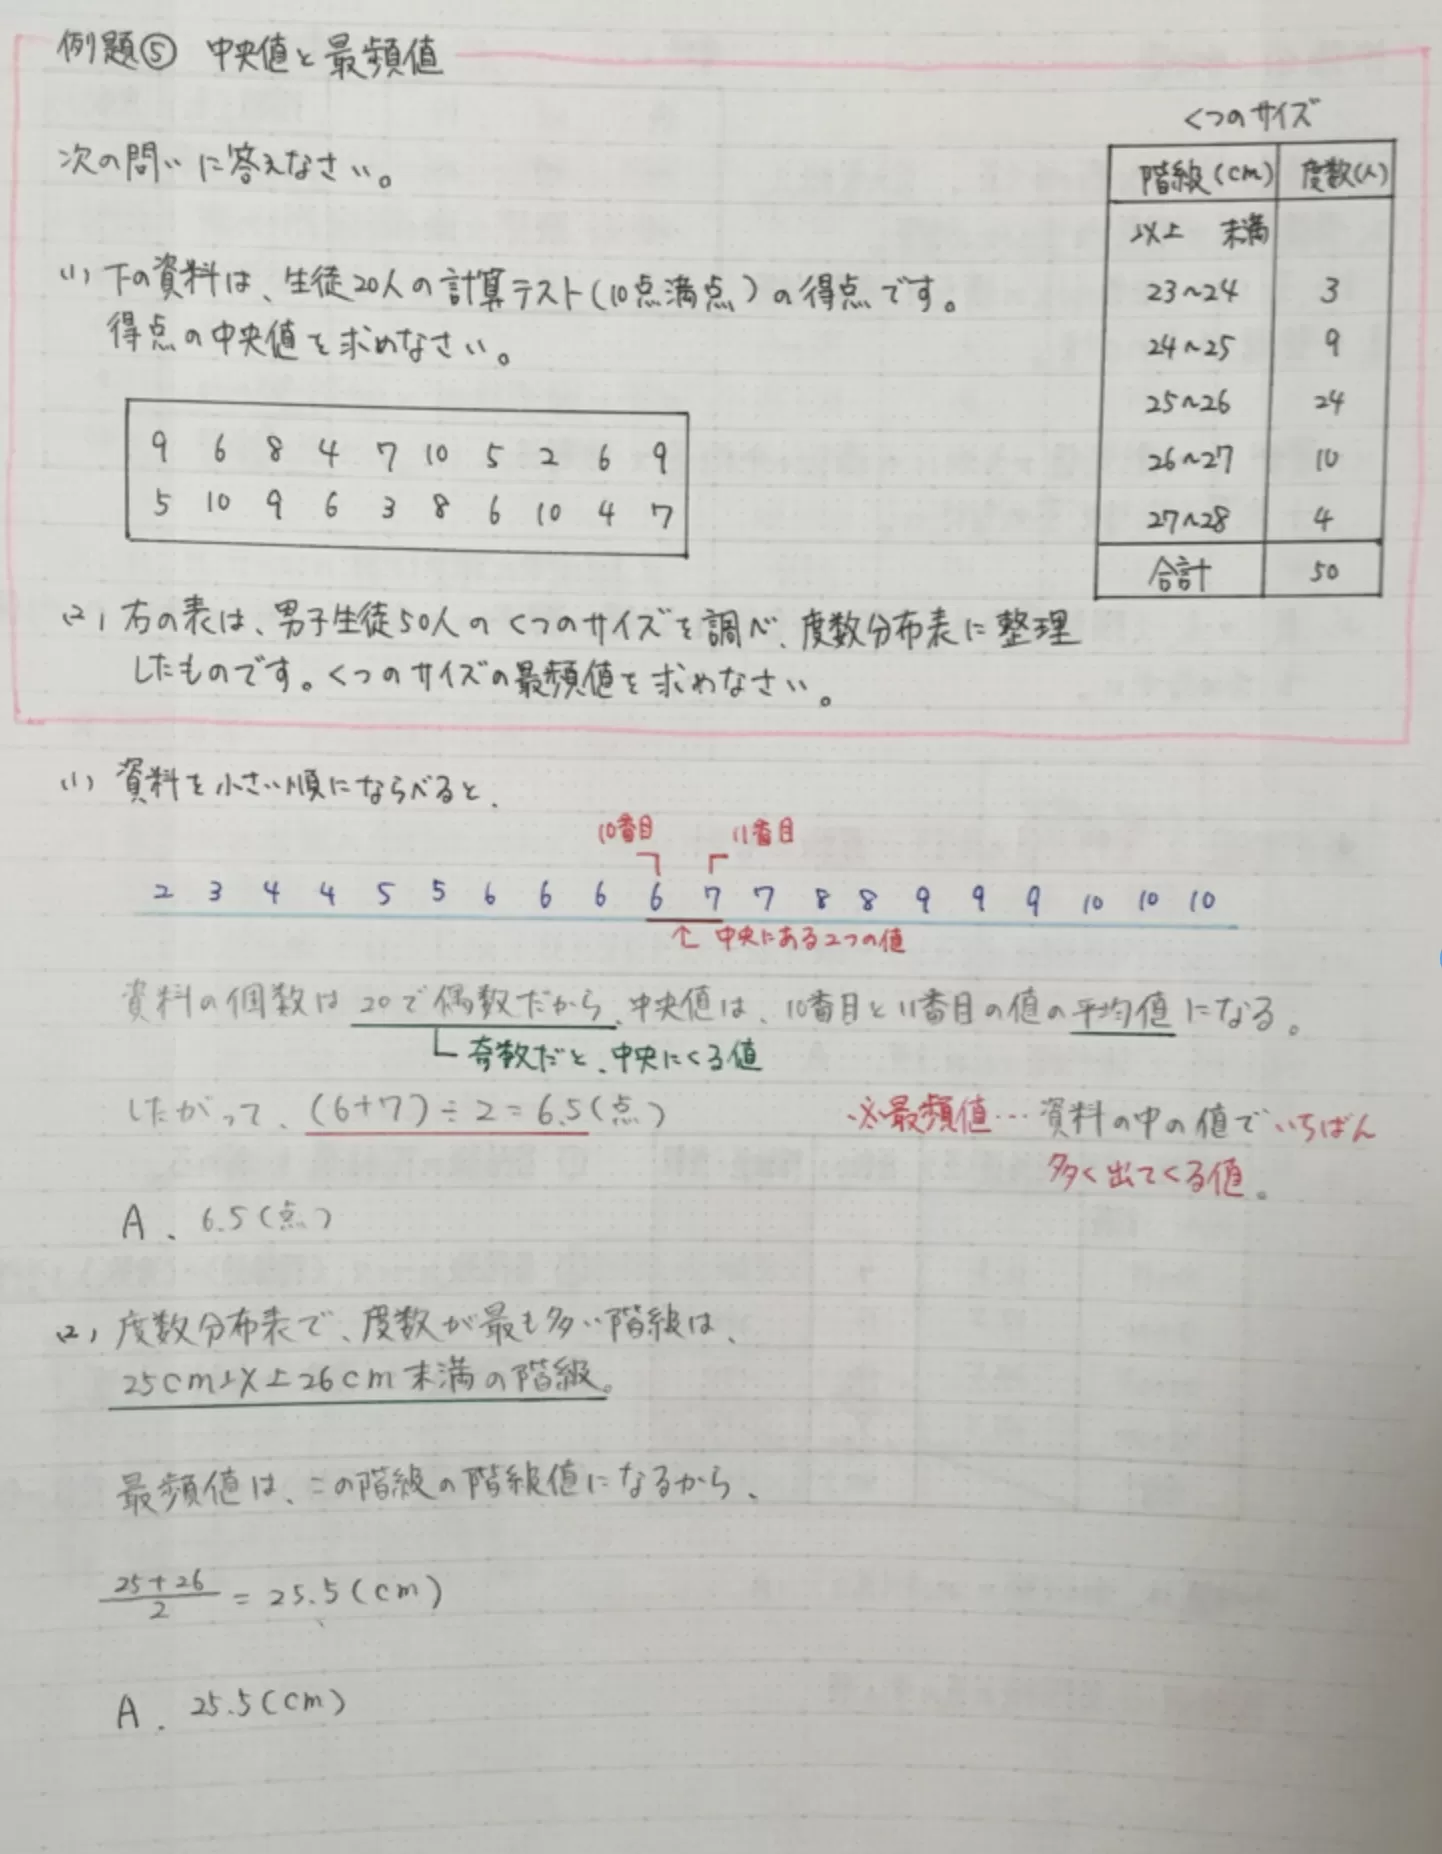 例題⑤ 中央値と最頻値
次の問いに答えなさい。
(1) 下の資料は、生徒20人の計算テスト(10点満点)の得点です。
得点の中央値を求めなさい。
9 6 8 4 7 10 5 2 6 9
5 10 9 6 3 8 6 10 4 7
くつのサイズ
階級(cm) 度数(人)
以上 未満
23~24 3
24~25 9
25~26 24
26~27 10
27~28 4
合計 50
(2) 右の表は、男子生徒50人のくつのサイズを調べ、度数分布表に整理
したものです。くつのサイズの最頻値を求めなさい。
(1) 資料を小さい順にならべると、
10番目 11番目
2 3 4 4 5 5 6 6 6 6 7 7 8 8 9 9 9 10 10 10
↑ 中央にある2つの値
資料の個数は20で偶数だから、中央値は、10番目と11番目の値の平均値になる。
奇数だと、中央にくる値
したがって、(6+7)÷2=6.5(点)
※最頻値…資料の中の値でいちばん
多く出てくる値。
A. 6.5(点)
(2) 度数分布表で、度数が最も多い階級は、
25cm以上26cm未満の階級。
最頻値は、この階級の階級値になるから、
25+26/2 = 25.5(cm)
A. 25.5(cm)